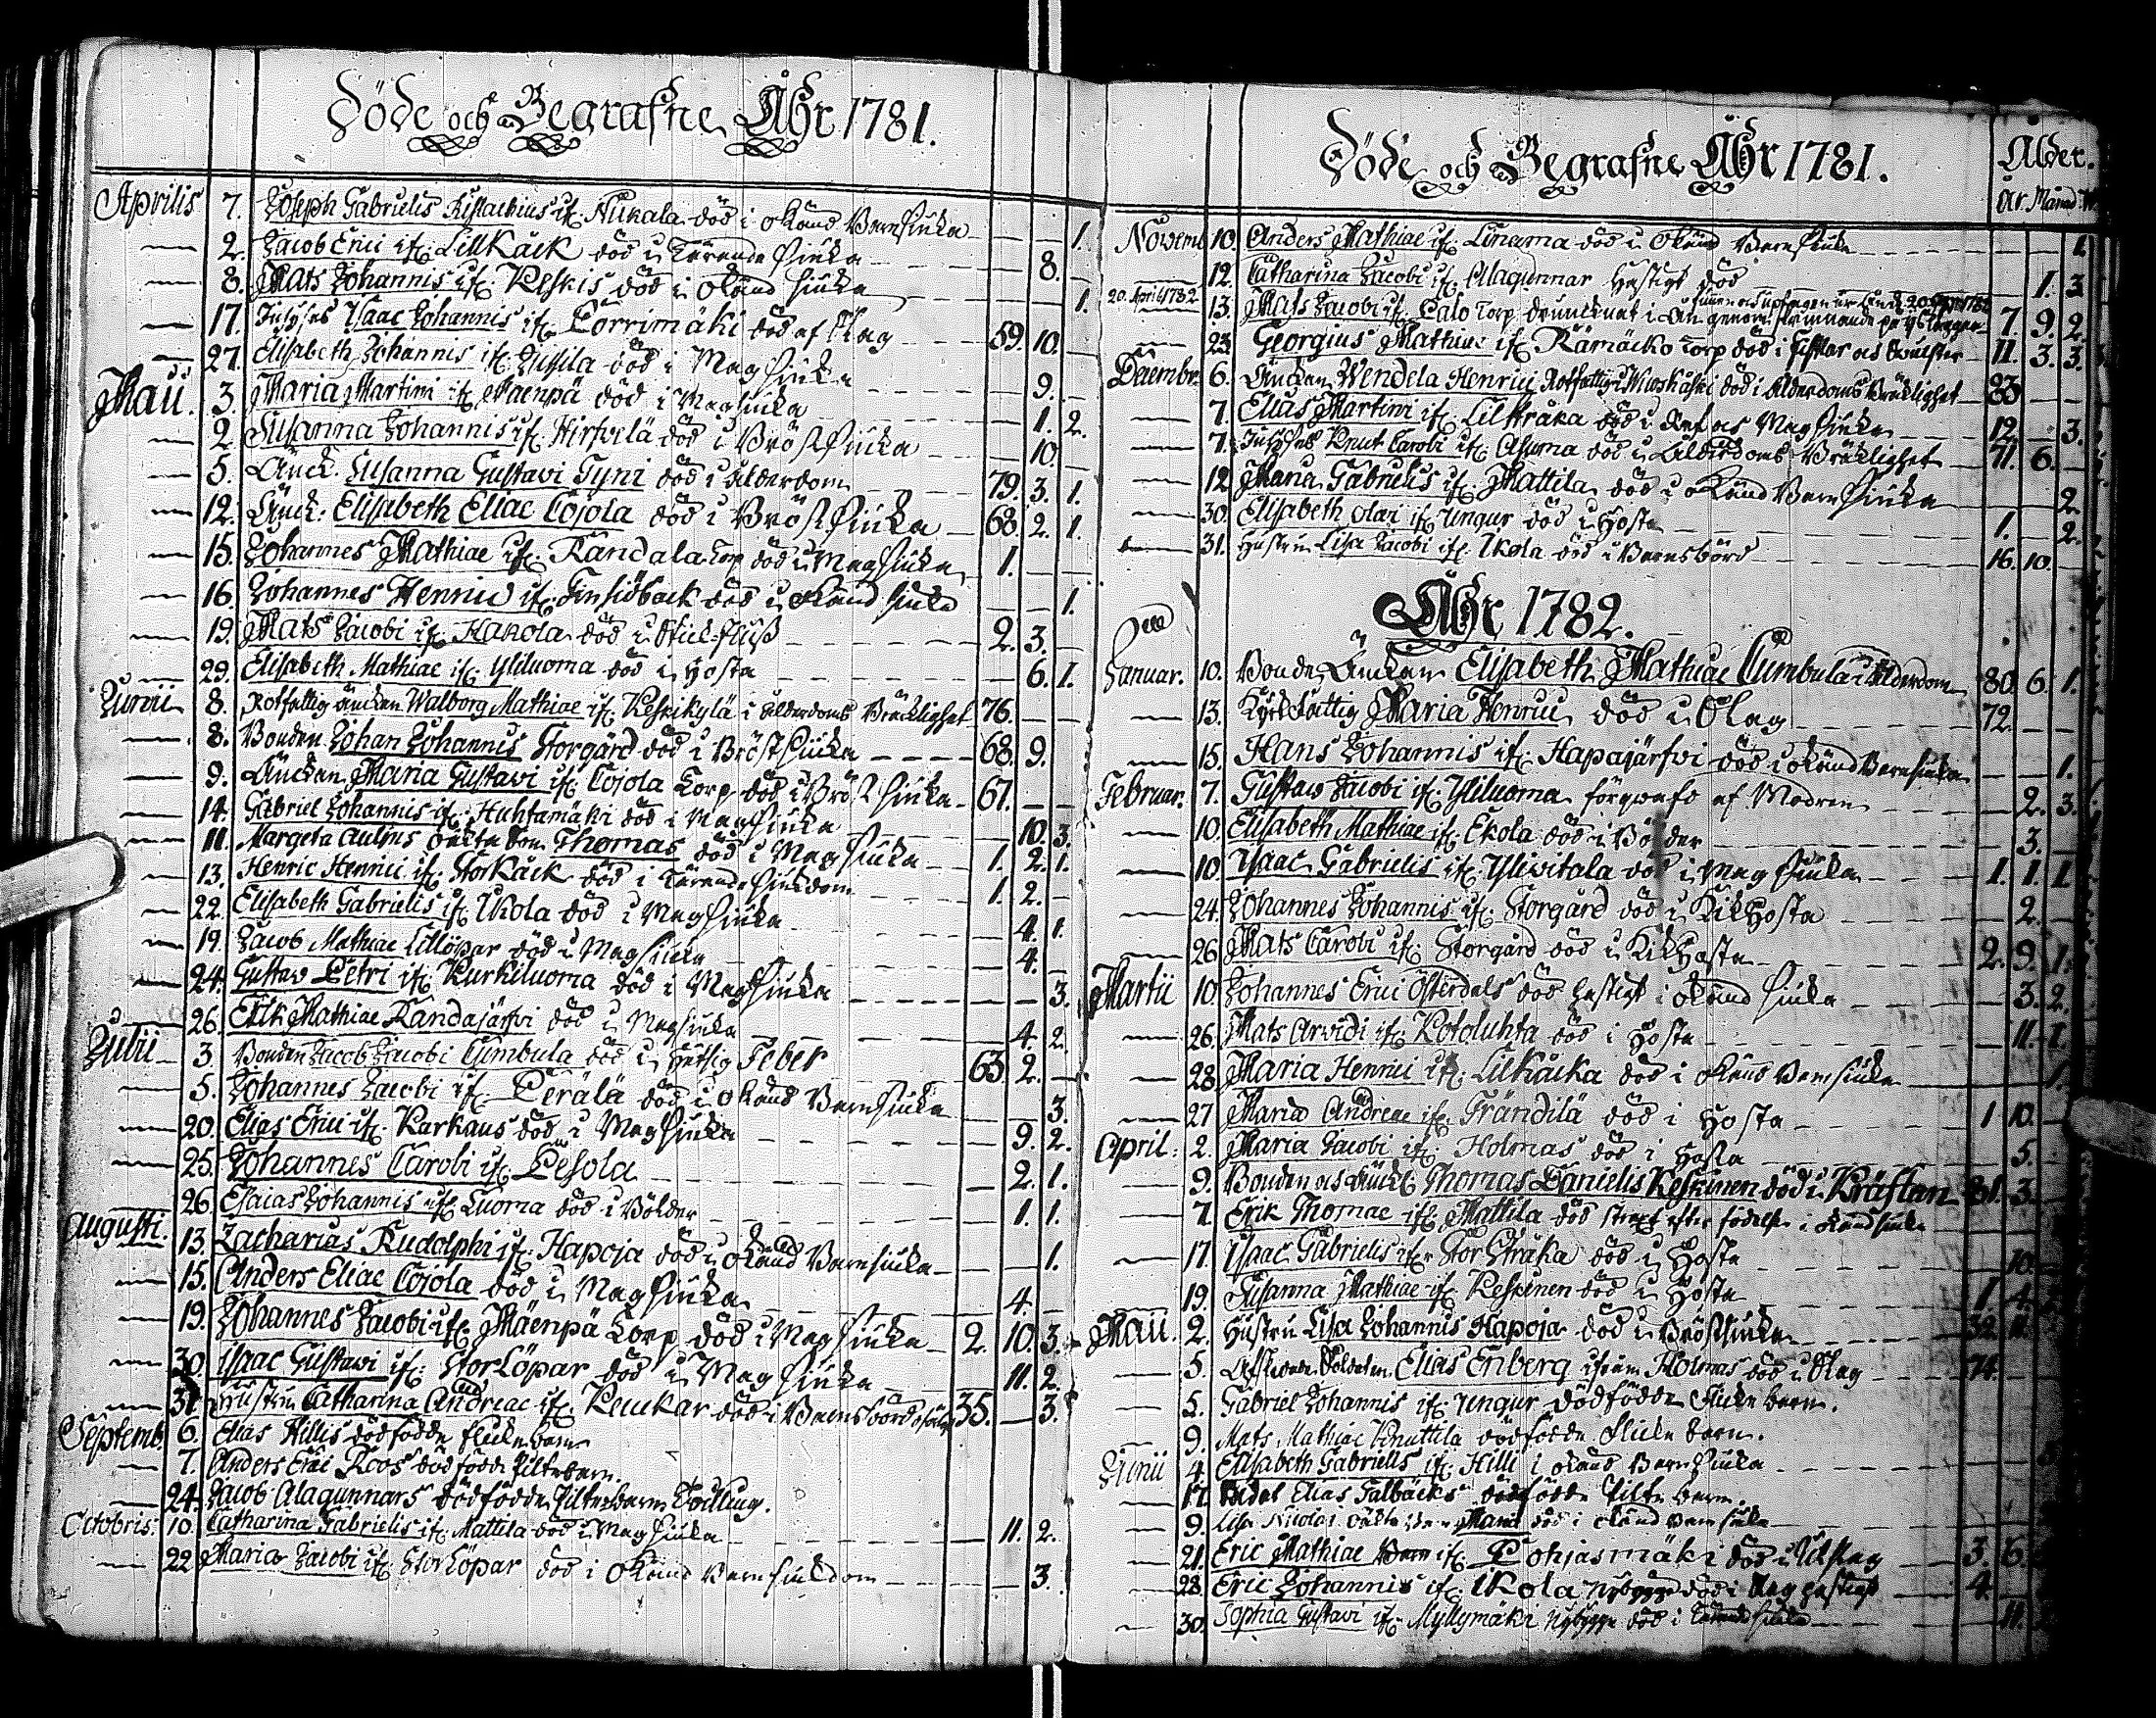 Döde och Begrafne Åhr 1781.
Aprilis 7. Joseph Gabrielis ifr. Nikala död i okänd Barnsjuka — — 1.
— 2. Jacob Erici ifr. Lillkäck död i Tärande sjuka — 8.
— 8. Mats Johannis ifr. Keskis död i okänd sjuka — — 1.
— 17. Isaac Johannis ifr. Porrimäki död af Slag 59. 10. —
— 27. Elisabeth Johannis ifr. död i Magsjuka — 9. —
Maii. 3. Maria Martini ifr. Mäenpä död i Magsjuka — 1. 2.
— 2. Susanna Johannis ifr. Hirfvelä död i Bröstsjuka — 10. —
— 5. Änck. Susanna Gustavi Tyni död i ålderdom 79. 3. 1.
— 12. Änck: Elisabeth Eliae Cojola död i Bröstsjuka 68. 2. 1.
— 15. Johannes Mathiae ifr. Randala torp död i Magsjuka 1. — —
— 16. Johannes Henrici ifr. död i okänd sjuka — — 1.
— 19. Mats Jacobi ifr. Hakola död i 2. 3. —
— 29. Elisabeth Mathiae ifr. Yliluoma död i Hosta — 6. 1.
Junii 8. Rotfattig änckan Walborg Mathiae ifr. Keskikylä i ålderdoms Bräcklighet 76. — —
— 8. Bonden Johan Johannis Storgård död i Bröstsjuka 68. 9. —
— 9. Änckan Maria Gustavi ifr. Cojola torp död i Bröstsjuka 67. — —
— 14. Gabriel Johannis ifr. Huhtamäki död i Magsjuka — 10. 3.
— 11. Margeta oäkta son Thomas död i Magsjuka 1. 2. 1.
— 13. Henric Henrici ifr. Storkäck död i Tärande sjukdom 1. 2. —
— 22. Elisabeth Gabrielis ifr. Ikola död i Magsjuka — 4. 1.
— 19. Jacob Mathiae Lillöpar död i Magsjuka — 4. —
— 24. Gustav Petri ifr. Kurkiluoma död i Magsjuka — — 3.
— 26. Erik Mathiae Randajärfvi död i Magsjuka — 4. 2.
Julii 3. Bonden Jacob Jacobi Cumbula död i Hettsig Feber 63. 2. —
— 5. Johannes Jacobi ifr. Perälä död i okänd Barnsjuka — — 3.
— 20. Elias Erici ifr. Karhaus död i Magsjuka — 9. 2.
— 25. Johannes Caroli ifr. Pesola — 2. 1.
— 26. Esaias Johannis ifr. Luoma död i Bölder — 1. 1.
Augusti. 13. Zacharias Rudolphi ifr. Hapoja död i okänd Barnsjuka — — 1.
— 15. Anders Eliae Cojola död i Magsjuka — 4. —
— 19. Johannes Jacobi ifr. Mäenpä torp död i Magsjuka 2. 10. 3.
— 30. Isaac Gustavi ifr. Storlöpar död i Magsjuka — 11. 2.
— 31. Hustrun Catharina Andreae ifr. död i Barnsbörd 35. — 3.
Septemb. 6. Elias Hillis dödfödde flickebarn
— 7. Anders Erici Roos dödfödde Piltebarn.
— 24. Jacob Alagunnars dödfödde Piltebarn Tvilling.
Octobris: 10. Catharina Gabrielis ifr. Mattila död i Magsjuka — 11. 2.
— 22 Maria Jacobi ifr. Storlöpar död i okänd Barnsjukdom — — 3.
Döde och Begrafne Åhr 1781.
Ålder.
år. Månad.
Novemb. 10. Anders Mathiae ifr. Linama död i okänd Barnsjuka — — 1.
— 12. Catharina Jacobi ifr. Alagunnar Hastigt död — 1. 3
20. April 1782 13. Mats Jacobi ifr. Calo torp drunknat i ån genom 7. 9. 2.
— 23. Georgius Mathiae ifr. Rämäcko torp död i 11. 3. 3.
Decembr. 6. Änckan Wendela Henrici Rotfattig död i ålderdoms Bräcklighet 83 — —
— 7. Elias Martini ifr. Lillkråka död i Ref och Magsjuka 12. — 3.
— 7. Knut Caroli ifr. Asuma död i Ålderdoms Bräcklighet 71. 6. —
— 12 Maria Gabrielis ifr. Mattila död i okänd Barnsjuka — — 2
— 30. Elisabeth Olai ifr. Ungur död i Hosta 1. — 2.
— 31. Hustrun Lisa Jacobi ifr. Ikola död i Barnsbörd 16. 10. —
Åhr 1782.
Januar. 10. Bonde Änckan Elisabeth Mathiae Cumbula i ålderdom 80. 6. 1.
— 13. Kyrkfattig Maria Henrici död i Slag 72. — —
— 15. Hans Johannis ifr. Hapajärfvi död i okänd Barnsjuka — — 1.
Februar. 7. Gustav Jacobi ifr. Yliluoma förqwafd af Modren — 2. 3.
— 10. Elisabeth Mathiae ifr. Ekola död i Bölder — 3. —
— 10. Isaac Gabrielis ifr. Yliwitala död i Magsjuka 1. 1. 1
— 24. Johannes Johannis ifr. Storgård död i Kikhosta — 2. —
— 26 Mats Caroli ifr. Storgård död i Kikhosta 2. 9. 1.
Martii 10. Johannes Erici Österdals död hastigt i okänd sjuka — 3. 2.
— 26. Mats Arvidi ifr. Kotoluhta död i Hosta — 11. 1.
— 28. Maria Henrici ifr. Lillkåika död i okänd Barnsjuka — — 1.
— 27 Maria Andreae ifr. Frändilä död i Hosta 1 10. —
April. 2. Maria Jacobi ifr. Holmas död i Hosta — 5. —
— 9. Bonden och Änckl. Thomas Danielis Keskinen död i Kräftan 81. 3. —
— 7. Erik Thomae ifr. Mattila död strext efter födelse i okänd sjuka
— 17. Isaac Gabrielis ifr. Stor Stråka död i Hosta — 10. —
— 19. Susanna Mathiae ifr. Keskinen död i Hosta 1 4.
Maii. 2. Hustru Lisa Johannis Hapoja död i Bröstsjuka 32 11.
— 5. Afskedade Soldaten Elias Enberg ifrån Holmas död i Slag 74.
— 5. Gabriel Johannis ifr. Ungur dödfödde Flickebarn.
— 9. Mats Mathiae Knuttila dödfödde Flickebarn.
Junii 4. Elisabeth Gabrielis ifr. Hilli i okänd Barnsjuka
— 17. Elias Falbäcks dödfödde Piltebarn.
— 9. Lisa Nicolai oäkta Barn Maria död i okänd Barnsjuka
— 21. Eric Mathiae ifr. Pohjasmäki död i Utslag 3. 6.
— 28. Eric Johannis ifr. Ikola Nybygge död i Slag hastigt 4.
— 30. Sophia Gustavi ifr. Myllymäki Nybygge död i Tärande sjuka — 11.